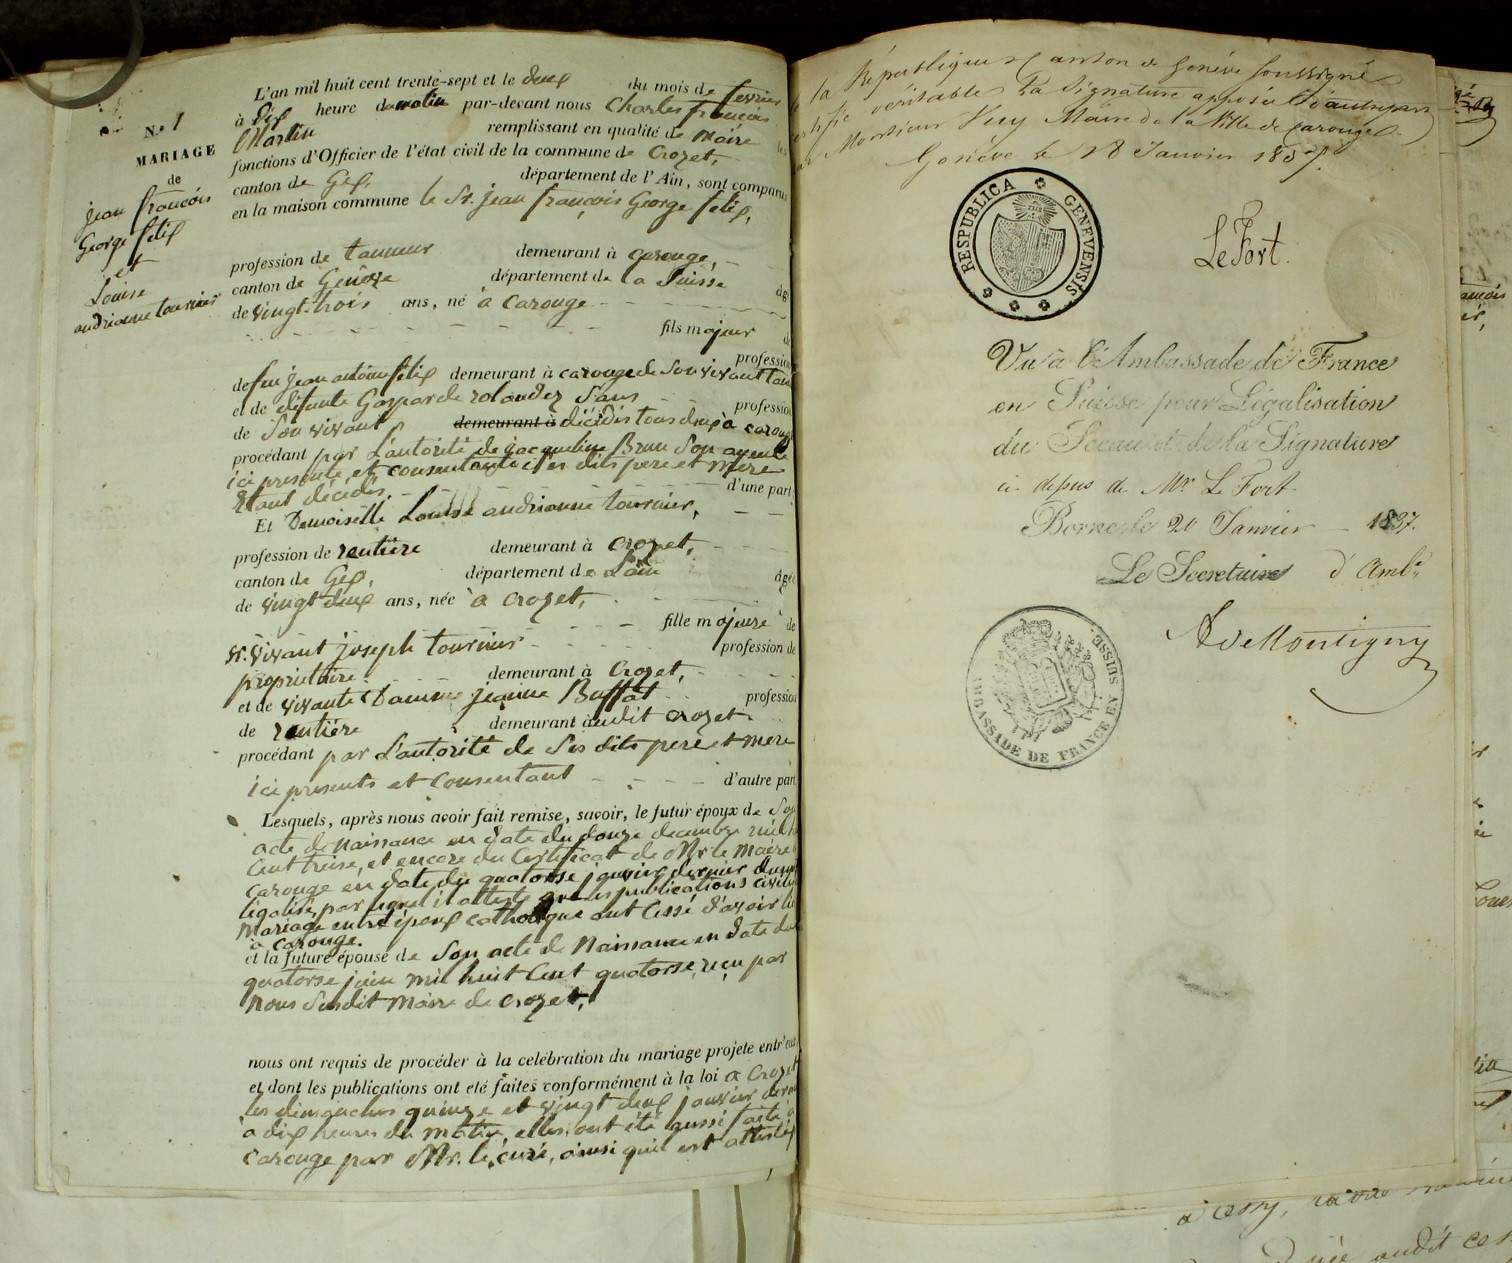 N.º 1
MARIAGE
de
jean francois
George felix
et
Louise
andrianne tournier
L'an mil huit cent trente-sept et le deux du mois de fevrier
à dix heure de matin par-devant nous Charles françois
Martin remplissant en qualité de maire les
fonctions d'Officier de l'état civil de la commune de Crozet,
canton de Gex, département de l'Ain, sont comparus
en la maison commune le Sr. jean françois George felix,
profession de tanneur demeurant à carouge,
canton de Genève département de la Suisse âgé
de vingt-trois ans, né à Carouge
fils majeur
profession
de feu jean antoine felix demeurant à carouge de Son vivant tan
et de défunte Gasparde rolandez Sans profession
de Son vivant demeurant à décédés tous deux à carouge
procédant par L'autorité de jacqueline Brun Son ayeule
ici presente et consentante ses dits pere et mere
Etant décédés d'une part
Et Demoiselle Louise andrianne tournier,
profession de rentière demeurant à Crozet,
canton de Gex, département de Lain âgée
de vingt deux ans, née à Crozet,
fille majeure de
sr. vivant joseph tournier profession de
propriétaire demeurant à Crozet,
et de vivante Damme jeanne Buffat profession
de rentière demeurant àudit Crozet
procédant par L'autorité de Ses dits pere et mere
ici presents et Consentant d'autre part
Lesquels, après nous avoir fait remise, savoir, le futur époux de Son
acte de Naissance en date du douze decembre mil
Cent treise, et encore du Certificat de Mr. le Maire
Carouge en date du quatorse janvier dernier
légalisé, par lequel il atteste que les publications civiles
Mariage entre époux catholique ont Cessé d'avoir
à carouge.
et la future épouse de Son acte de Naissance en date du
quatorse juin mil huit Cent quatorse, reçu par
Nous Susdit Maire de Crozet,
nous ont requis de procéder à la celébration du mariage projete entr'eux
et dont les publications ont eté faites conformément à la loi a Crozet
les dimanches quinze et vingt deux janvier dernier
à dix heures du matin, elles ont été aussi faite à
Carouge par Mr. le curé, ainsi quil est attesté
la République & Canton de Genève soussigné
certifie véritable la Signature apposée d'autre part
Monsieur Maire de la Ville de Carouge.
Genève le 18 Janvier 1837.
RESPUBLICA GENEVENSIS
LeFort.
Vu à l'Ambassade de France
en Suisse pour Légalisation
du Sceau et de la Signature
ci-dessus de Mr. Le Fort
Berne le 20 Janvier 1837.
Le Secretaire d'Amb.e
AdeMontigny
AMBASSADE DE FRANCE EN SUISSE.